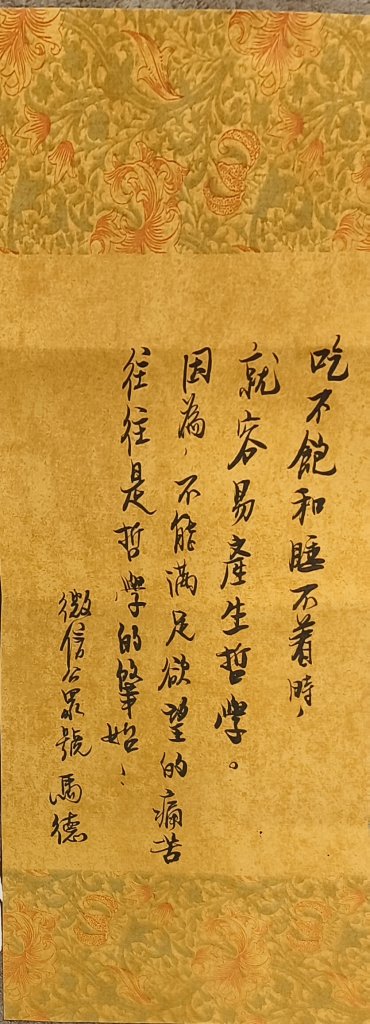 吃不飽和睡不着時，
就容易產生哲學。
因為，不能滿足欲望的痛苦
往往是哲學的肇始！
微信公眾號馬德